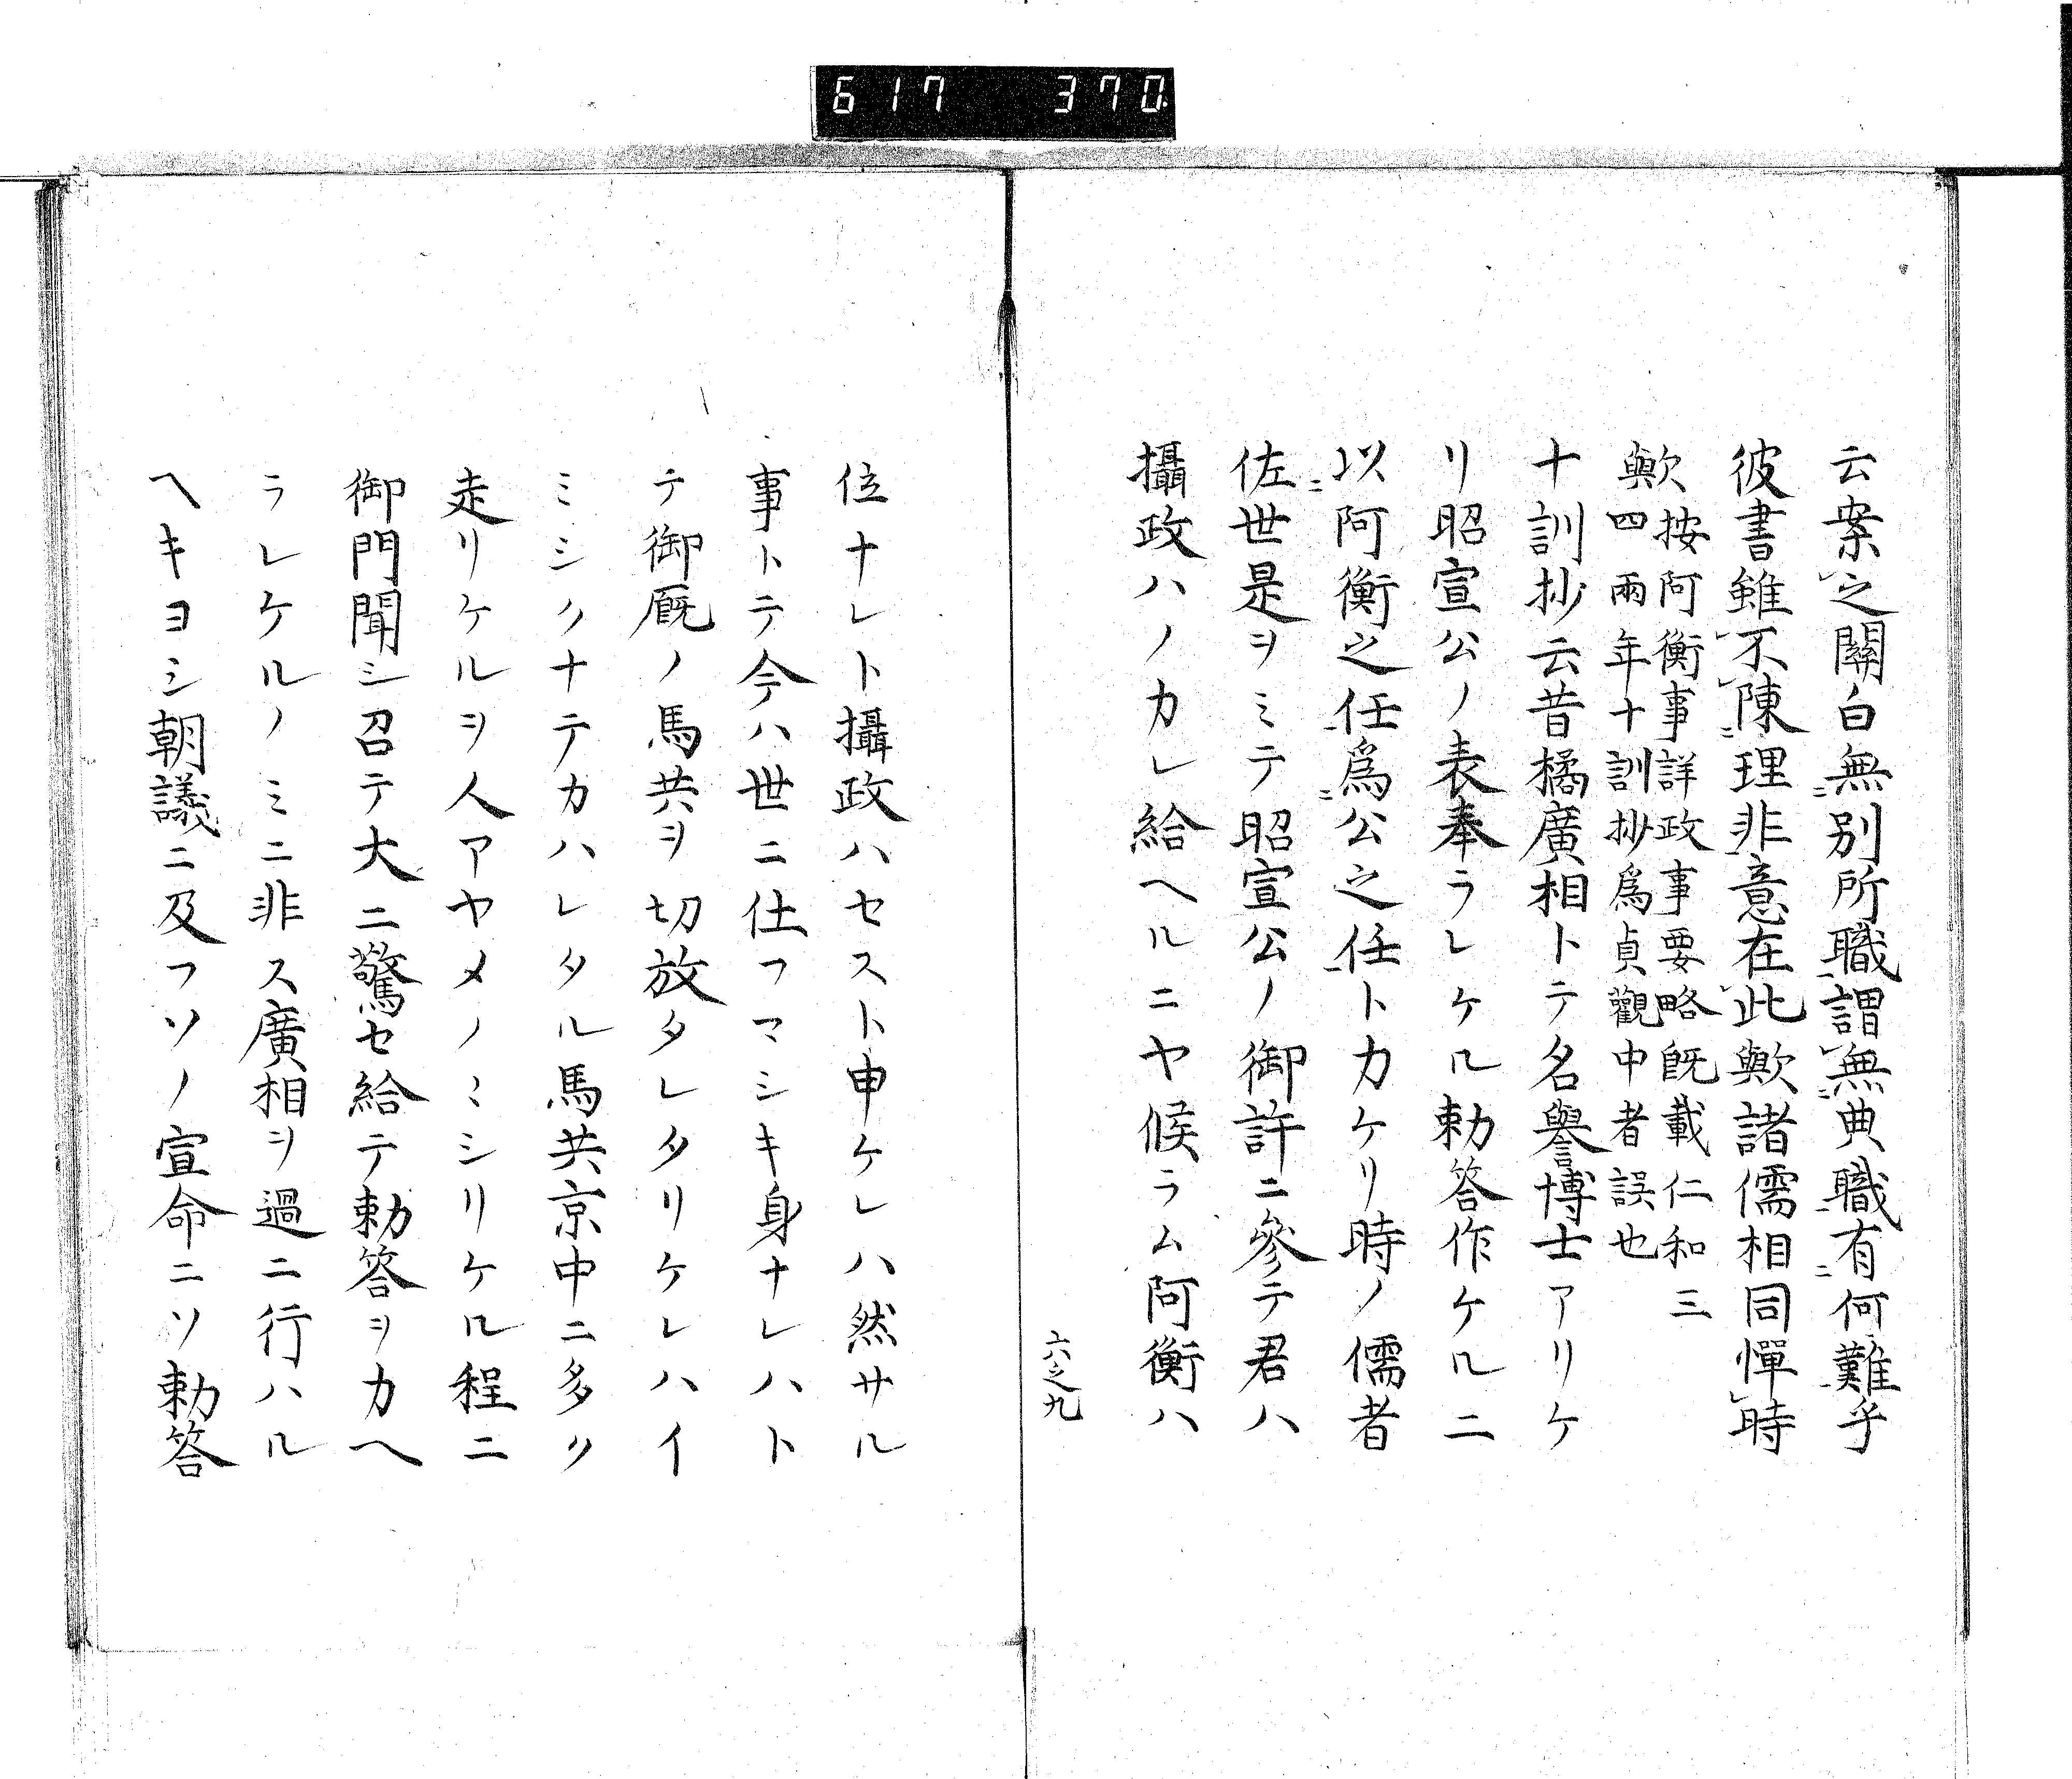 617 370
云案之關白無別所職謂無典職有何難乎
彼書雖不陳理非意在此歟諸儒相同憚時
歟按阿衡事詳政事要略既載仁和三
歟四兩年十訓抄爲貞觀中者誤也
十訓抄云昔橘廣相トテ名譽博士アリケ
リ昭宣公ノ表奉ラレケル勅答作ケルニ
以阿衡之任爲公之任トカケリ時ノ儒者
佐世是ヲミテ昭宣公ノ御許ニ參テ君ハ
攝政ハノカレ給ヘルニヤ候ラム阿衡ハ
六之九
位ナレト攝政ハセスト申ケレハ然サル
事トテ今ハ世ニ仕フマシキ身ナレハト
テ御厩ノ馬共ヲ切放タレタリケレハイ
ミシクナテカハレタル馬共京中ニ多ク
走リケルヲ人アヤメノヽシリケル程ニ
御門聞シ召テ大ニ驚セ給テ勅答ヲカヘ
ラレケルノミニ非ス廣相ヲ過ニ行ハル
ヘキヨシ朝議ニ及フソノ宣命ニソ勅答